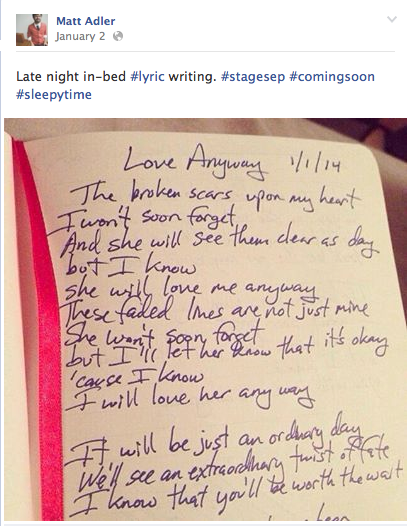 Matt Adler
January 2
Late night in-bed #lyric writing. #stagesep #comingsoon
#sleepytime
Love Anyway 1/1/14
The broken scars upon my heart
I won't soon forget
And she will see them clear as day
but I know
she will love me anyway
These faded lines are not just mine
She won't soon forget
but I'll let her know that it's okay
'cause I know
I will love her any way
It will be just an ordinary day
We'll see an extraordinary twist of fate
I know that you'll be worth the wait